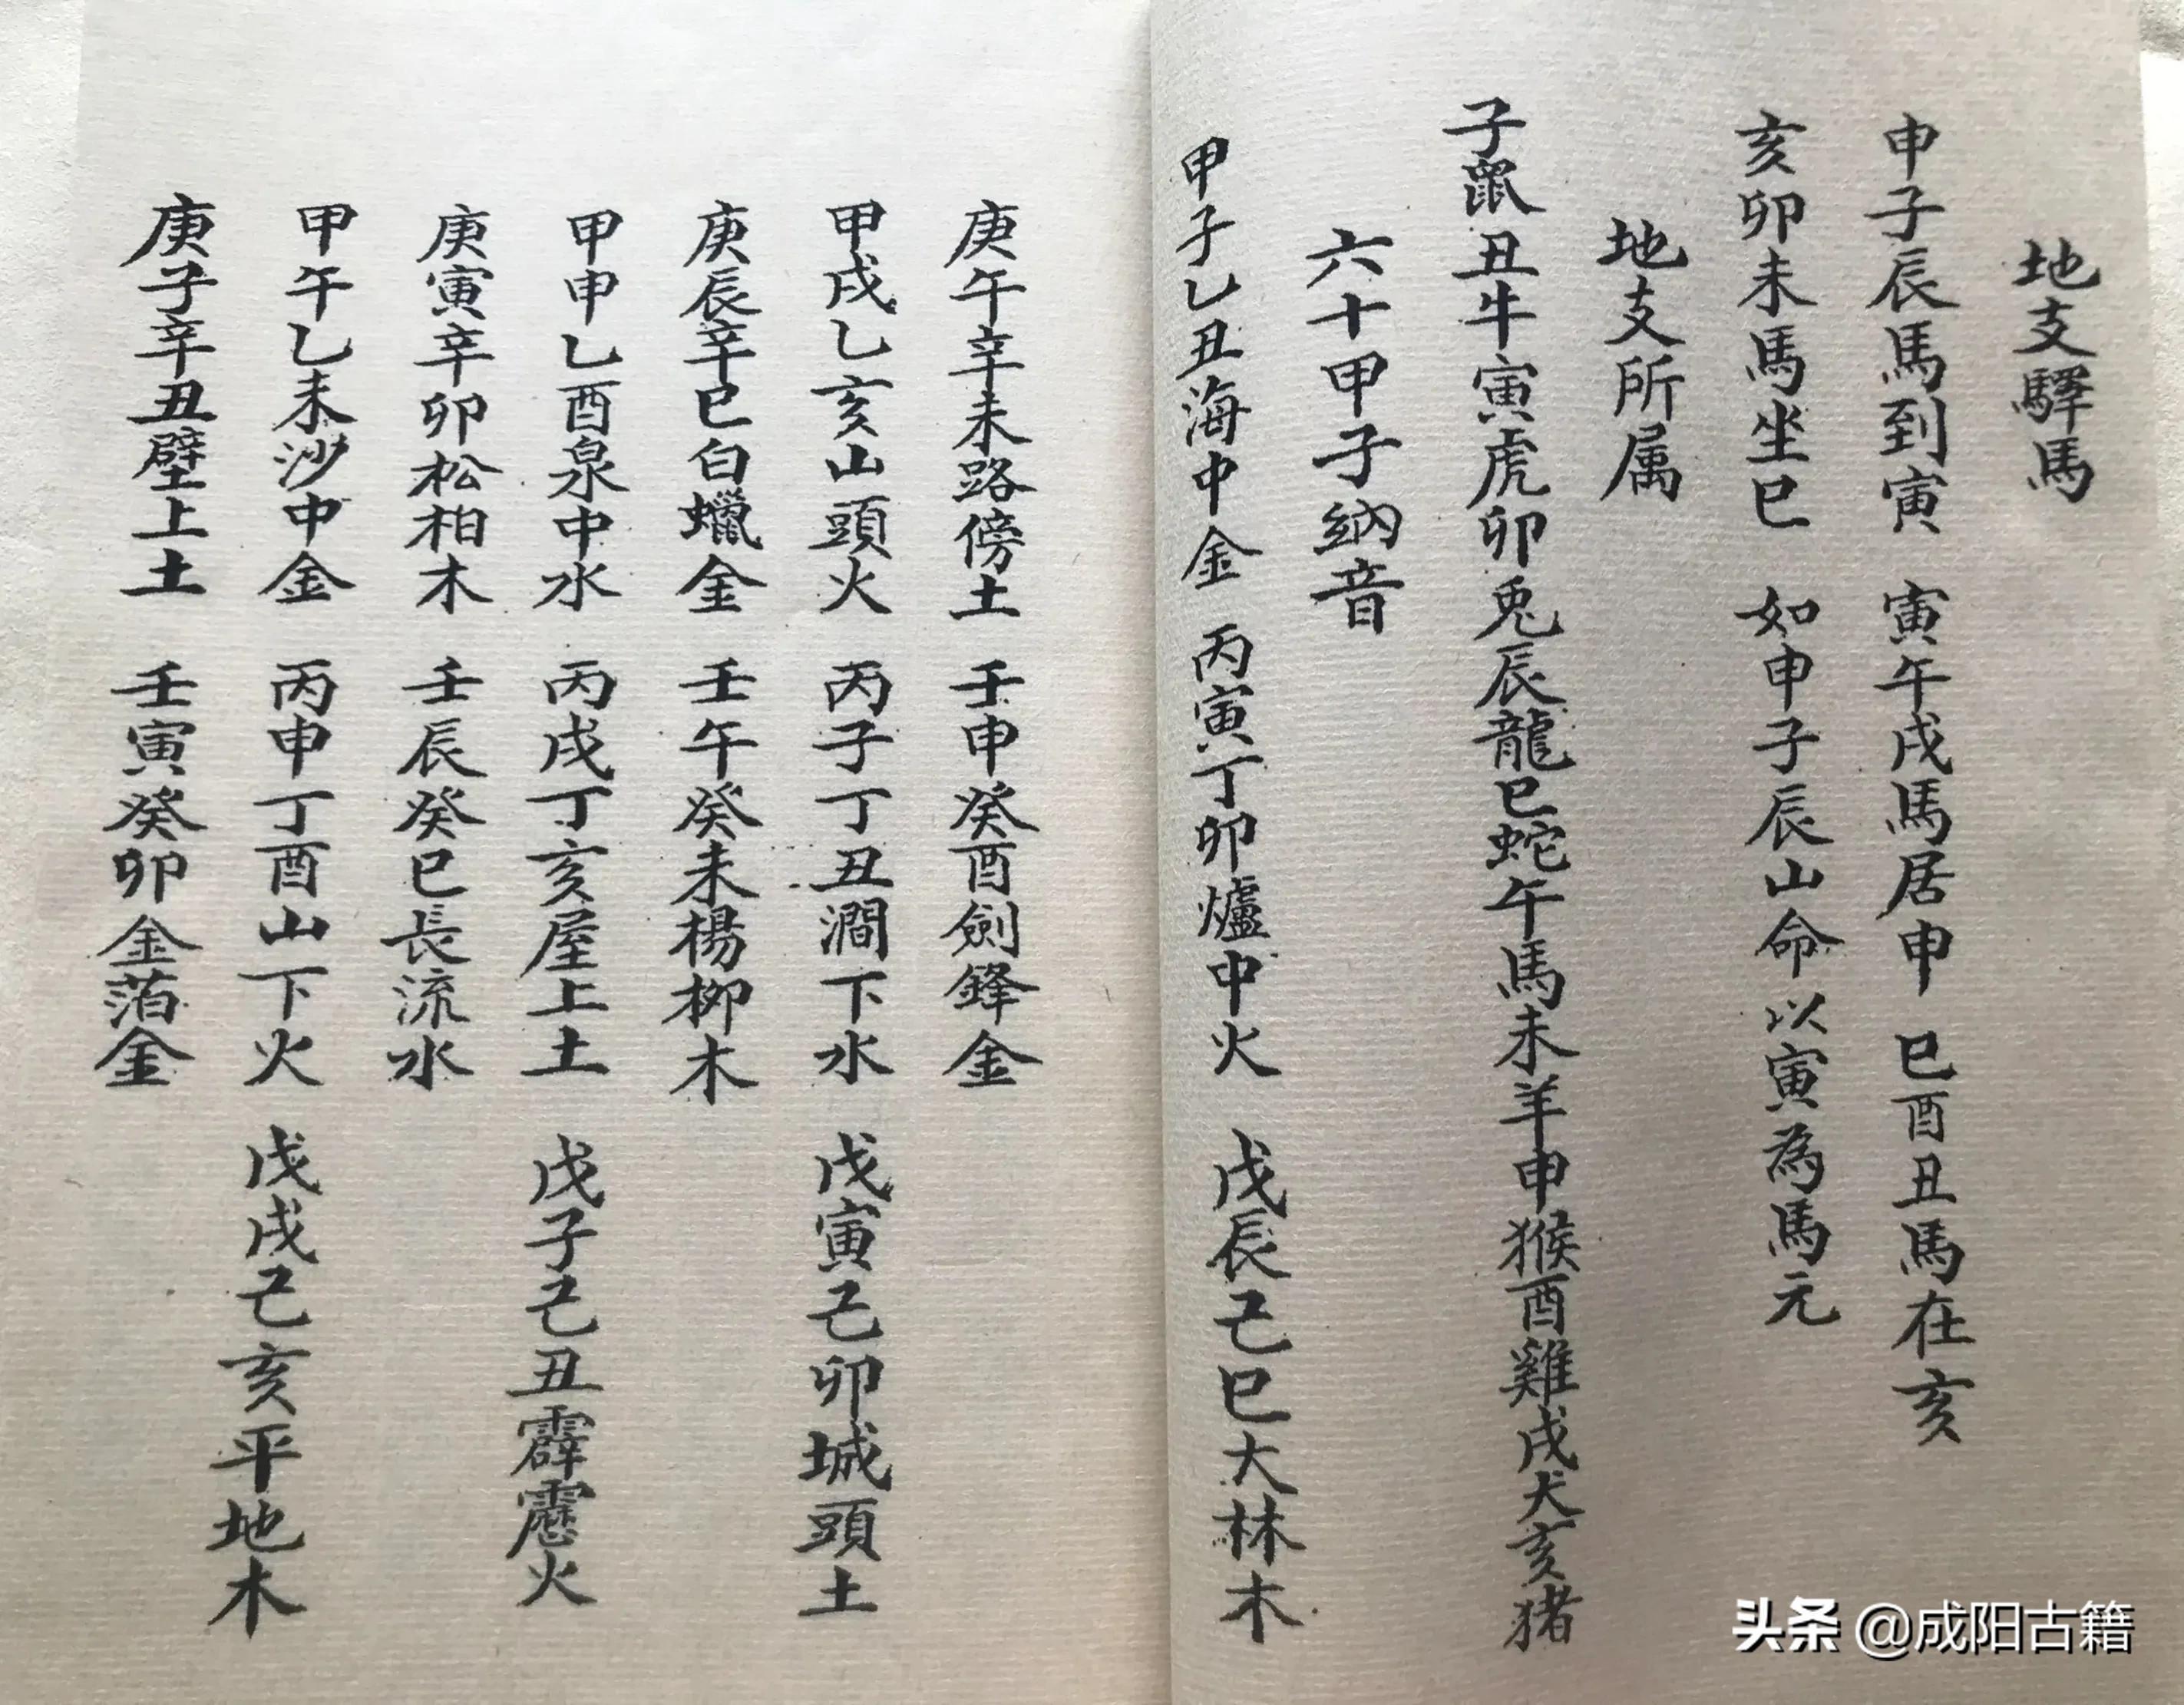 地支驛馬
申子辰馬到寅 寅午戌馬居申 巳酉丑馬在亥
亥卯未馬坐巳 如申子辰山命以寅為馬元
地支所属
子鼠丑牛寅虎卯兎辰龍巳蛇午馬未羊申猴酉雞戌犬亥猪
六十甲子納音
甲子乙丑海中金 丙寅丁卯爐中火 戊辰己巳大林木
庚午辛未路傍土 壬申癸酉劍鋒金
甲戌乙亥山頭火 丙子丁丑澗下水 戊寅己卯城頭土
庚辰辛巳白蠟金 壬午癸未楊柳木
甲申乙酉泉中水 丙戌丁亥屋上土 戊子己丑霹靂火
庚寅辛卯松柏木 壬辰癸巳長流水
甲午乙未沙中金 丙申丁酉山下火 戊戌己亥平地木
庚子辛丑壁上土 壬寅癸卯金箔金
头条 @成阳古籍